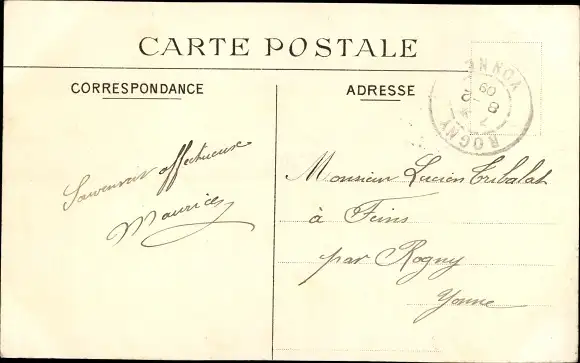 CARTE POSTALE
CORRESPONDANCE
ADRESSE
YONNE
09
8 - 2
7
ROGNY
Souvenir affectueux
Maurice
Monsieur Lucien Tribalat
à Feins
par Rogny
Yonne